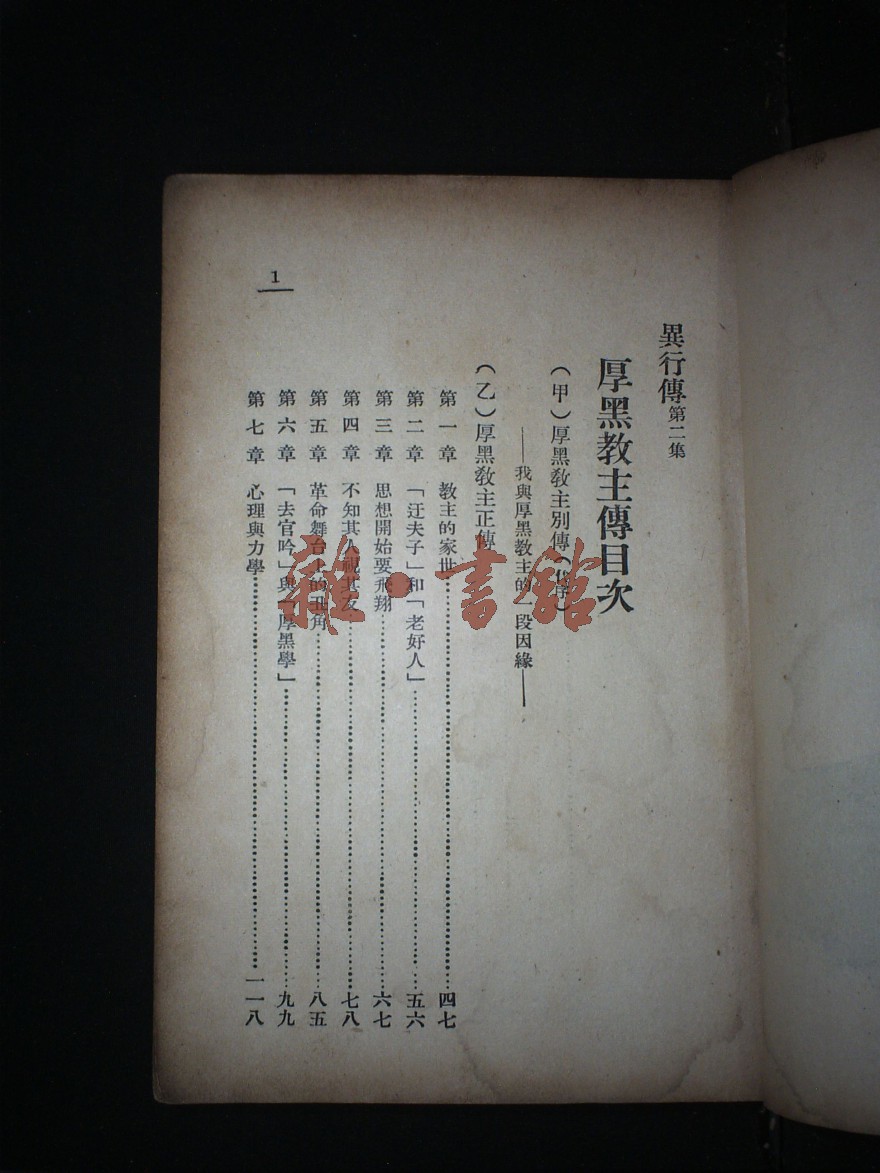 異行傳第二集
厚黑教主傳目次
（甲）厚黑教主別傳（代序）
——我與厚黑教主的一段因緣——
（乙）厚黑教主正傳
第一章 教主的家世……四七
第二章 「迂夫子」和「老好人」……五六
第三章 思想開始要飛翔……六七
第四章 不知其人視其友……七八
第五章 革命舞台上的丑角……八五
第六章 「去官吟」與「厚黑學」……九九
第七章 心理與力學……一一八
1
雜·書館